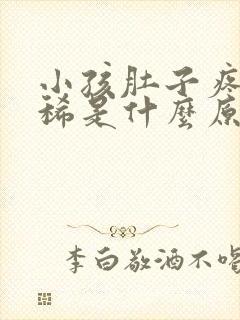 小孩肚子疼
稀是什麼原
李白敬酒不喝